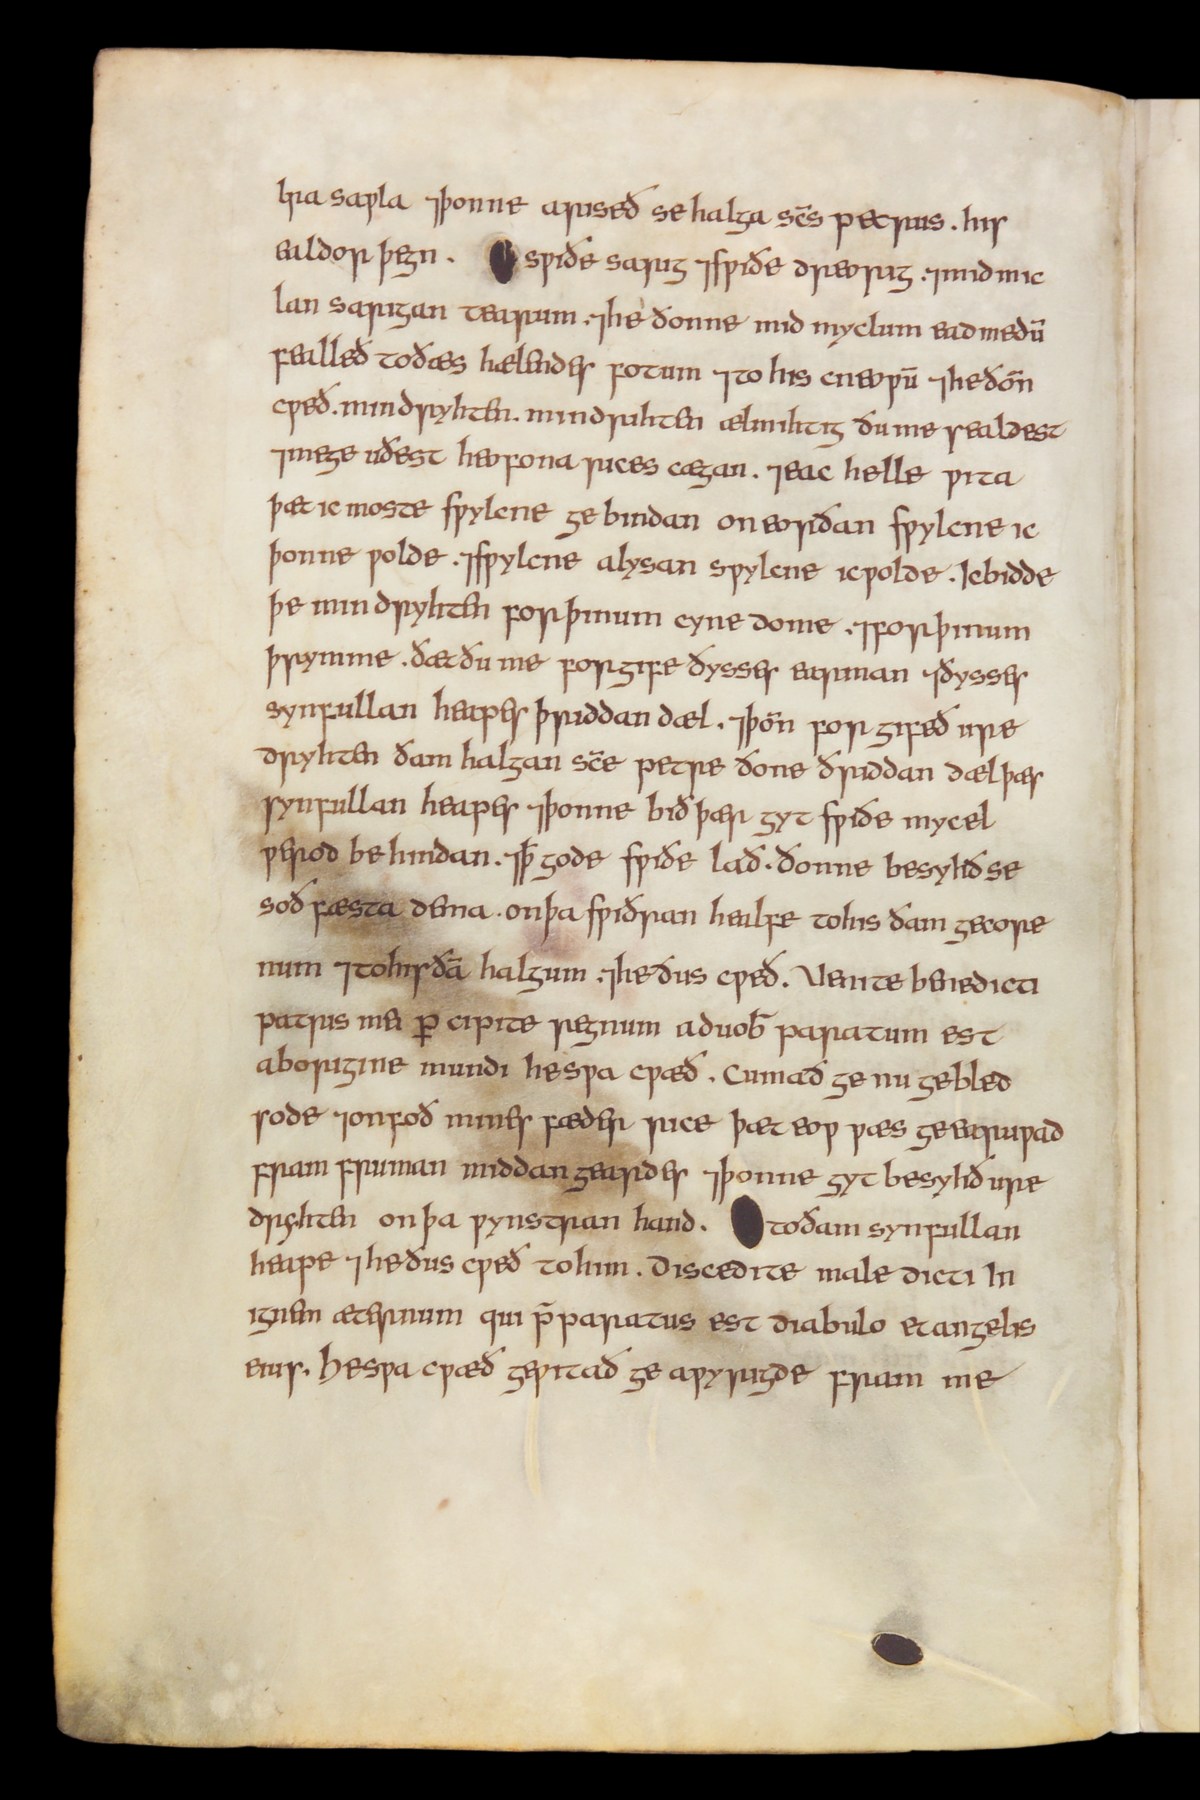 hra saƿla ⁊þonne ariseð se halga sc̄s petrus. his
ealdor þegn. sƿiðe sarig ⁊sƿiðe dreorig. ⁊mid mic
lan sarigan tearum. ⁊he ðonne mid myclum eadmedū
fealleð toðæs hælendes fotum ⁊to his cneoƿū ⁊he ðon̄
cƿeð. min dryhten. min drihten ælmihtig ðu me sealdest
⁊mege uðest heofona rices cægan. ⁊eac helle ƿita
þæt ic moste sƿylcne ge bindan on eorðan sƿylcne ic
þonne ƿolde. ⁊sƿylcne alysan sƿylcne ic ƿolde. Ic bidde
þe min dryhten for þinum cyne dome. ⁊for þinum
þrymme. ðæt ðu me for gife ðysses earman ⁊ðysses
synfullan heapes þriddan dæl. ⁊þon̄ for gifeð ure
dryhten ðam halgan sc̄e petre ðone ðriddan dæl þæs
synfullan heapes ⁊þonne bið þær gyt sƿiðe mycel
ƿerod be hindan. ⁊ꝥ gode sƿiðe lað. ðonne besyhð se
soð fæsta dema. on þa sƿiðran healfe to his ðam gecore
num ⁊to his ðā halgum. ⁊he ðus cƿeð. Uenite benedicti
patris mei ꝑ cipite regnum a duob̄ paratum est
ab origine mundi he sƿa cƿæð. Cumað ge nu gebled
sode ⁊onfoð mines fæder rice þæt eoƿ ƿæs geearƿad
fram fruman middan geardes ⁊þonne gyt besyhð ure
dryhten on þa ƿynstran hand. to ðam synfullan
heape ⁊he ðus cƿeð to him. Discedite male dicti In
ignem æternum qui p̄paratus est diabulo et angelis
eius. He sƿa cƿæð geƿitað ge aƿyrigde fram me